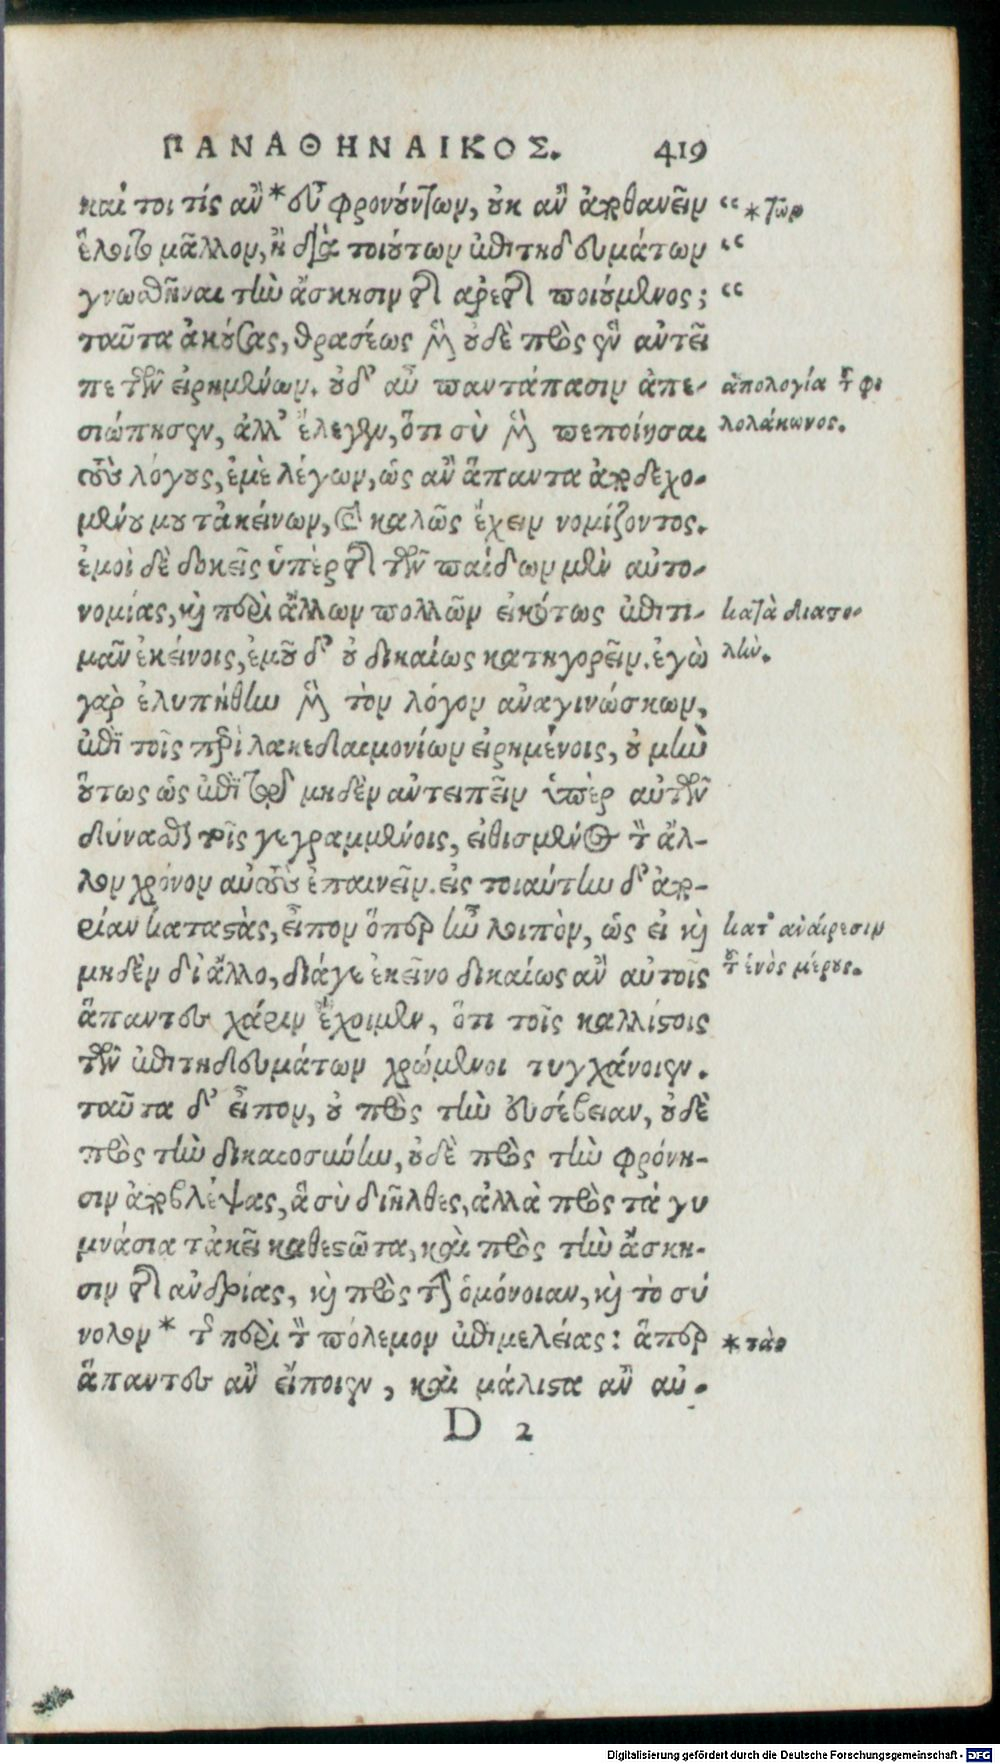 ΠΑΝΑΘΗΝΑΙΚΟΣ. 419
καί τοι τίς ἂν * εὖ φρονούντων, οὐκ ἂν ἀποθανεῖν “ * τῶν
ἕλοιτο μᾶλλον, ἢ διὰ τοιούτων ἐπιτηδευμάτων “
γνωσθῆναι τὴν ἄσκησιν τῆς ἀρετῆς ποιούμενος; “
ταῦτα ἀκούσας, θρασέως μὲν οὐδὲ πρὸς ἓν ἀντεῖ
πε τῶν εἰρημένων. οὐδ' αὖ παντάπασιν ἀπε- ἀπολογία τοῦ φι
σιώπησεν, ἀλλ' ἔλεγεν, ὅτι σὺ μὲν πεποίησαι λολάκωνος.
τοὺς λόγους, ἐμὲ λέγων, ὡς ἂν ἅπαντα ἀποδεχο-
μένου μου τἀκείνων, καὶ καλῶς ἔχειν νομίζοντος.
ἐμοὶ δὲ δοκεῖς ὑπὲρ τῆς τῶν παίδων μὲν αὐτο-
νομίας, καὶ περὶ ἄλλων πολλῶν εἰκότως ἐπιτι- κατὰ διαστο-
μᾶν ἐκείνοις, ἐμοῦ δ' οὐ δικαίως κατηγορεῖν. ἐγὼ λήν.
γὰρ ἐλυπήθην μὲν τὸν λόγον ἀναγινώσκων,
ἐπὶ τοῖς περὶ λακεδαιμονίων εἰρημένοις, οὐ μὴν
οὕτως ὡς ἐπὶ τῷ μηδὲν ἀντειπεῖν ὑπὲρ αὐτῶν
δύνασθαι τοῖς γεγραμμένοις, εἰθισμένος τὸν ἄλ-
λον χρόνον αὐτοὺς ἐπαινεῖν. εἰς τοιαύτην δ' ἀπο-
ρίαν καταστὰς, εἶπον ὅπερ ἦν λοιπὸν, ὡς εἰ καὶ κατ' ἀναίρεσιν
μηδὲν δι' ἄλλο, διά γε ἐκεῖνο δικαίως ἂν αὐτοῖς τοῦ ἑνὸς μέρους.
ἅπαντες χάριν ἔχοιμεν, ὅτι τοῖς καλλίστοις
τῶν ἐπιτηδευμάτων χρώμενοι τυγχάνοισν.
ταῦτα δ' εἶπον, οὐ πρὸς τὴν εὐσέβειαν, οὐδὲ
πρὸς τὴν δικαιοσύνην, οὐδὲ πρὸς τὴν φρόνη-
σιν ἀποβλέψας, ἃ σὺ διῆλθες, ἀλλὰ πρὸς τὰ γυ
μνάσια τἀκεῖ καθεστῶτα, καὶ πρὸς τὴν ἄσκη-
σιν τῆς ἀνδρίας, καὶ πρὸς τὴν ὁμόνοιαν, καὶ τὸ σύ
νολον * τῆς περὶ τὸν πόλεμον ἐπιμελείας: ἅπερ * τὰς
ἅπαντες ἂν εἴποιεν, καὶ μάλιστα ἂν αὐ-
D 2
Digitalisierung gefördert durch die Deutsche Forschungsgemeinschaft - DFG